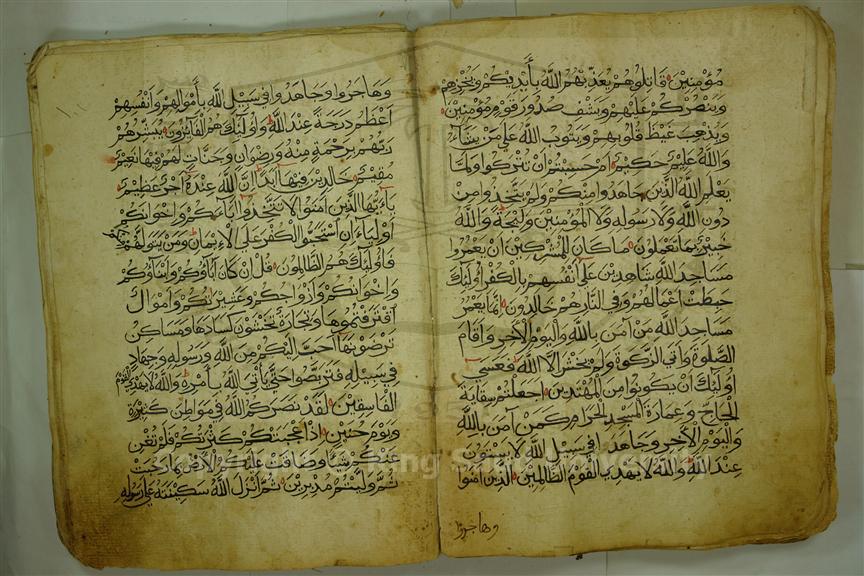 مؤمنين قاتلوهم يعذبهم الله بأيديكم ويخزهم
وينصركم عليهم ويشف صدور قوم مؤمنين
ويذهب غيظ قلوبهم ويتوب الله على من يشاء
والله عليم حكيم ام حسبتم ان تتركوا ولما
يعلم الله الذين جاهدوا منكم ولم يتخذوا من
دون الله ولا رسوله ولا المؤمنين وليجة والله
خبير بما تعملون ما كان للمشركين ان يعمروا
مساجد الله شاهدين على انفسهم بالكفر اولئك
حبطت اعمالهم وفي النار هم خالدون انما يعمر
مساجد الله من آمن بالله واليوم الآخر واقام
الصلوة واتي الزكوة ولم يخش الا الله فعسى
اولئك ان يكونوا من المهتدين اجعلتم سقاية
الحاج وعمارة المسجد الحرام كمن آمن بالله
واليوم الآخر وجاهد في سبيل الله لا يستون
عند الله والله لا يهدي القوم الظالمين الذين امنوا
وهاجروا
وهاجروا وجاهدوا في سبيل الله بأموالهم وانفسهم
اعظم درجة عند الله واولئك هم الفائزون يبشرهم
ربهم برحمة منه ورضوان وجنات لهم فيها نعيم
مقيم خالدين فيها ابدا ان الله عنده اجر عظيم
يا ءيها الذين امنوا لا تتخذوا آباءكم واخوانكم
اولياء ان استحبوا الكفر على الايمان ومن يتولهم منكم
فاولئك هم الظالمون قل ان كان آباؤكم وابناؤكم
واخوانكم وازواجكم وعشيرتكم واموال
اقترفتموها وتجارة تخشون كسادها ومساكن
ترضونها احب اليكم من الله ورسوله وجهاد
في سبيله فتربصوا حتى يأتي الله بأمره والله لا يهدي القوم
الفاسقين لقد نصركم الله في مواطن كثيرة
ويوم حنين اذ اعجبتكم كثرتكم فلم تغن
عنكم شيئا وضاقت عليكم الارض بما رحبت
ثم وليتم مدبرين ثم انزل الله سكينته على رسوله